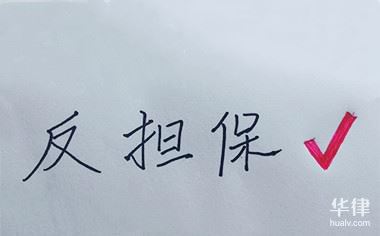 反担保 ✓
华律
hualv.com